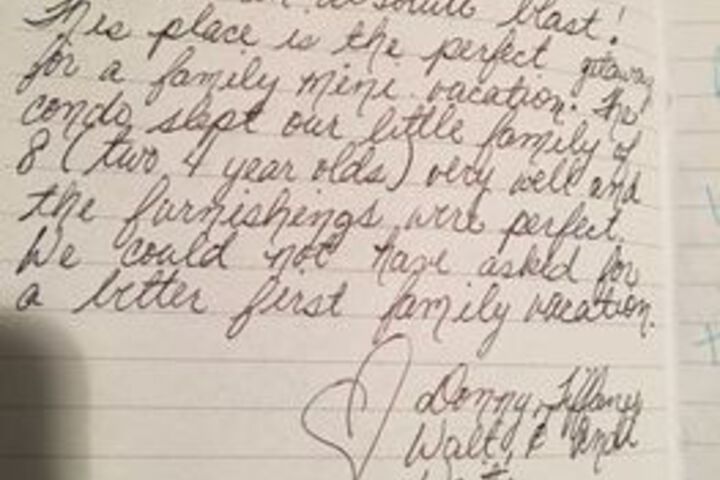 absolute blast!
This place is the perfect getaway
for a family mini vacation. The
condo slept our little family of
8 (two 4 year olds) very well and
the furnishings were perfect.
We could not have asked for
a better first family vacation.
Donny, Tiffany
Walt, &